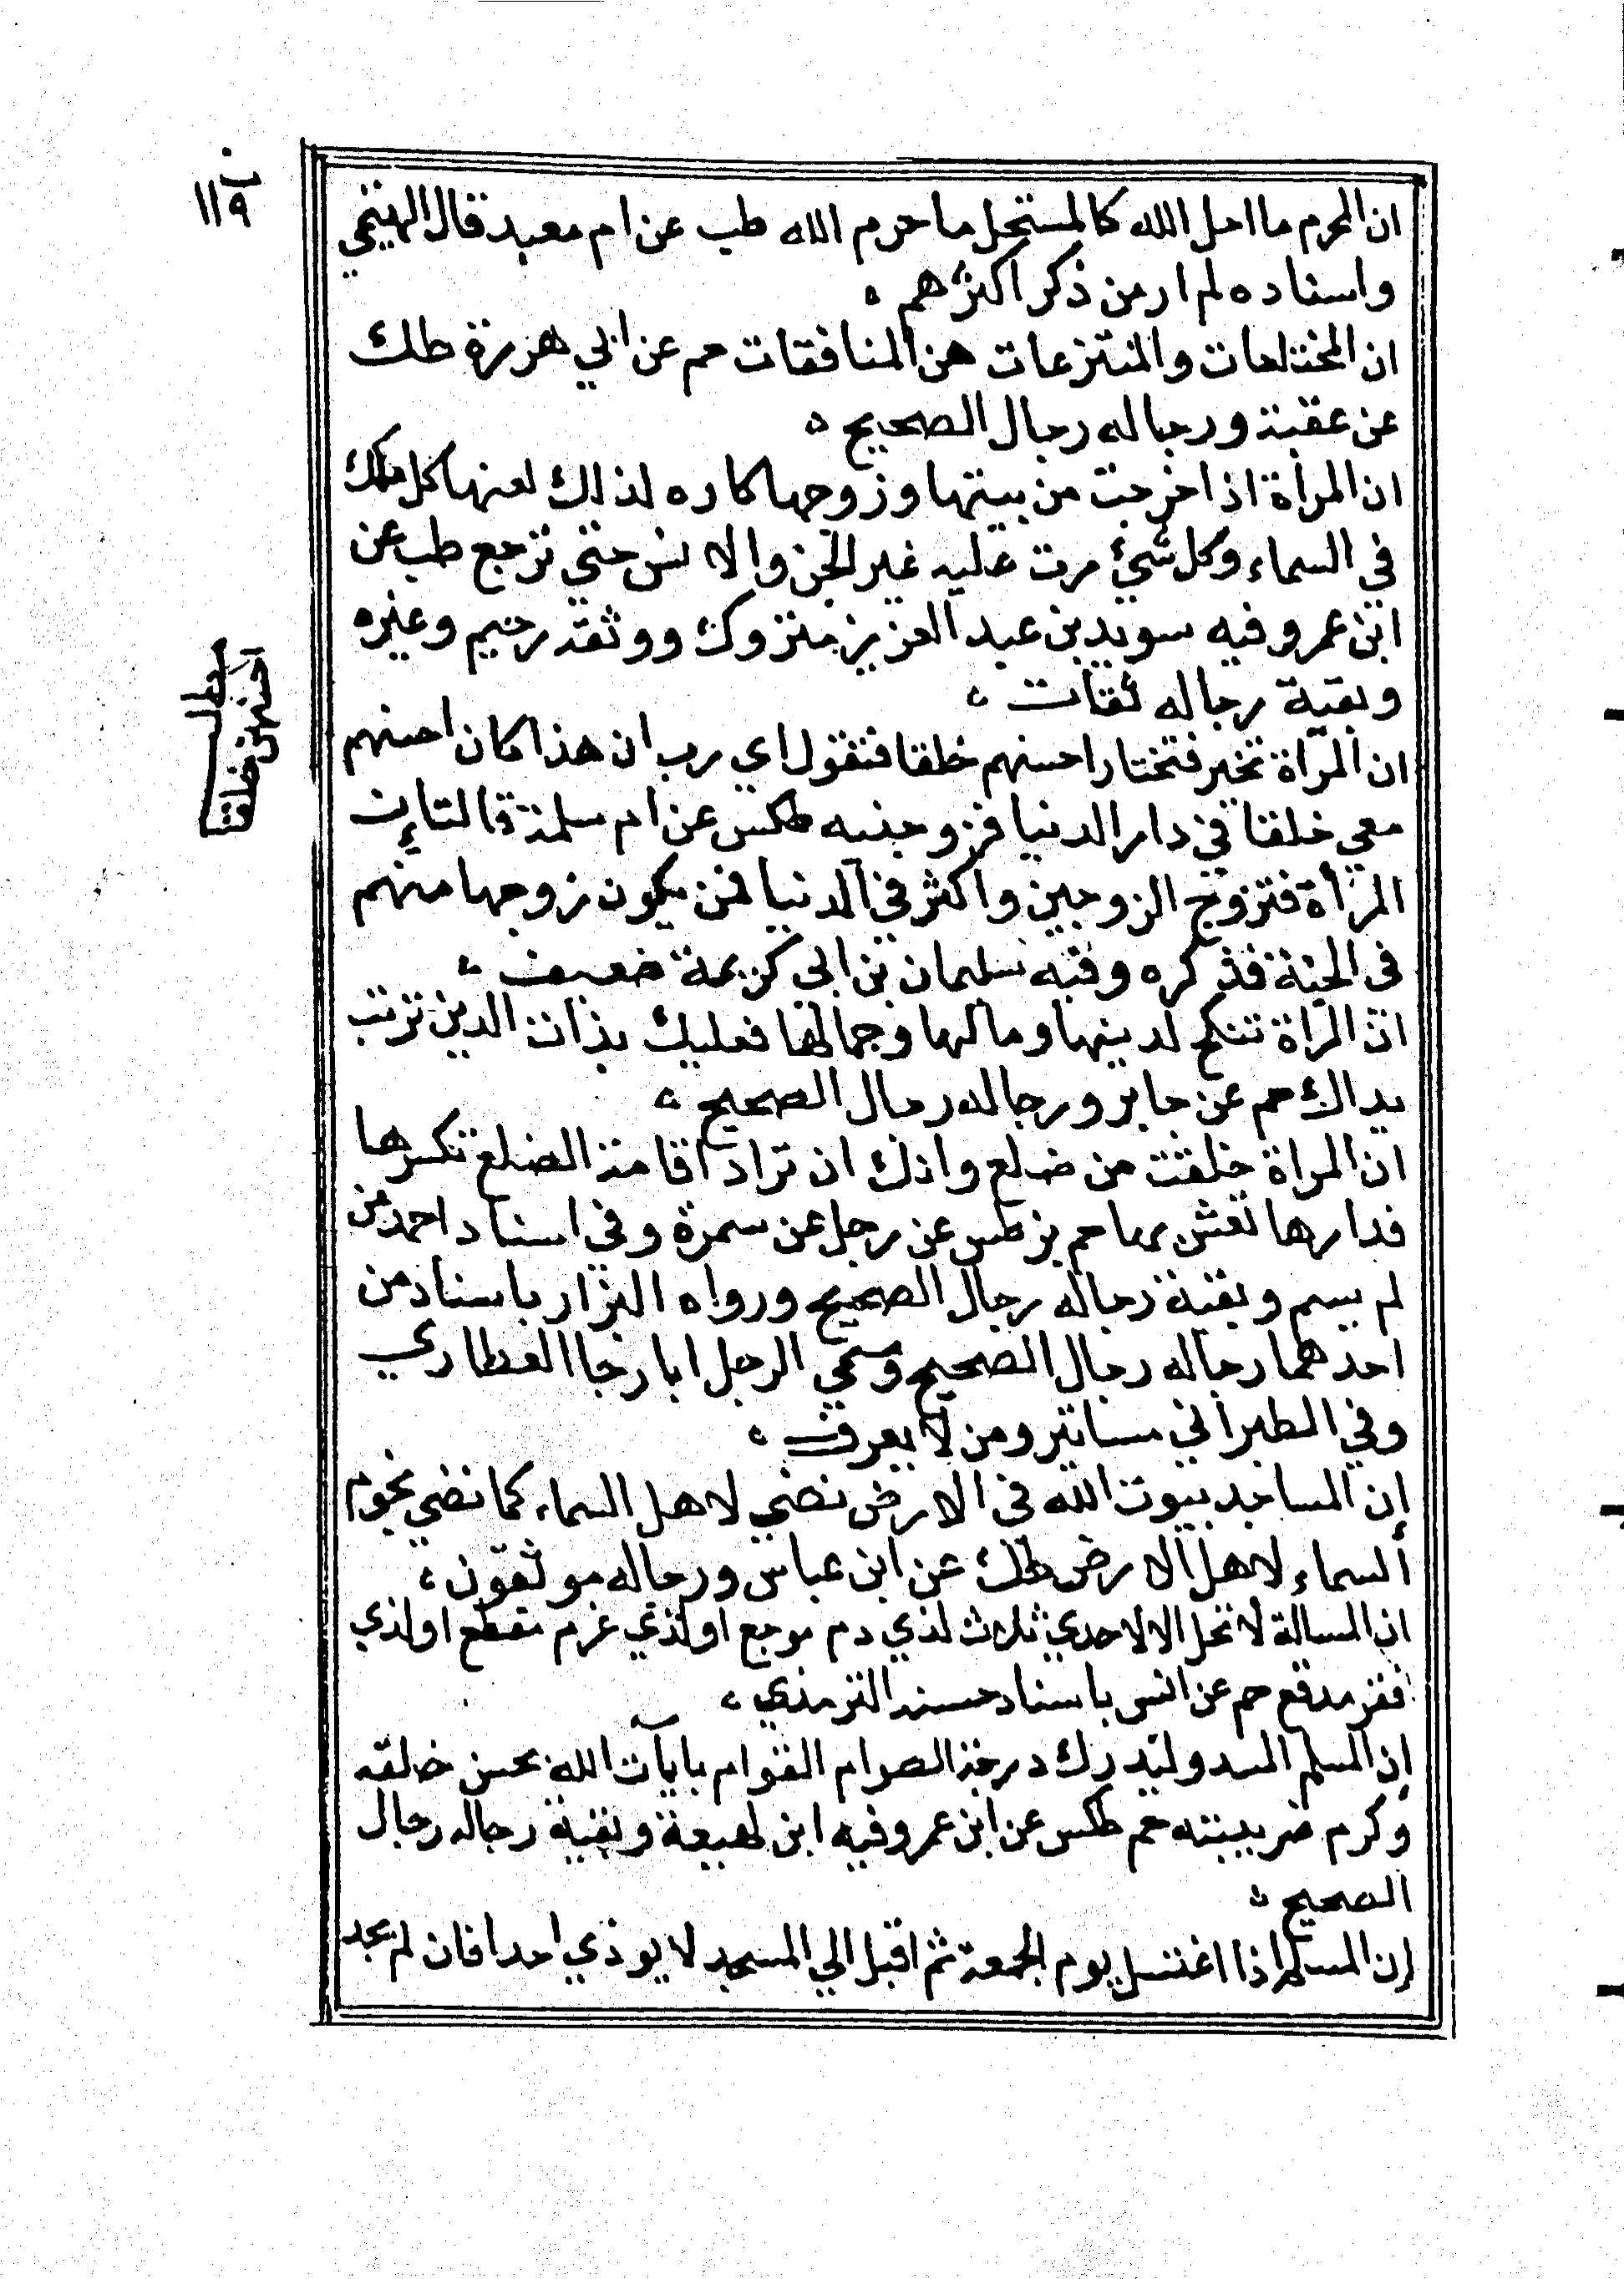 ان المحرم ما احل الله كالمستحل ما حرم الله طب عن ام معبد قال الهيتمي
واسناده لم ار من ذكر اكثرهم
ان المختلعات والمنتزعات هن المنافقات حم عن ابي هريرة طك
عن عقبة ورجاله رجال الصحيح
ان المرأة اذا خرجت من بيتها وزوجها كاره لذلك لعنها كل ملك
في السماء وكل شيء مرت عليه غير الجن والانس حتي ترجع طب عن
ابن عمر وفيه سويد بن عبد العزيز متروك ووثقه رحيم وغيره
وبقية رجاله ثقات
ان المرأة تخير فتختار احسنهم خلقا فتقول اي رب ان هذا كان احسنهم
معي خلقا في دار الدنيا فزوجنيه طكس عن ام سلمة قالت
المرأة فتزوج الزوجين واكثر في الدنيا فمن يكون زوجها منهم
في الجنة فذكره وفيه سليمان بن ابي كريمة ضعيف
ان المرأة تنكح لدينها ومالها وجمالها فعليك بذات الدين تربت
يداك حم عن جابر ورجاله رجال الصحيح
ان المراة خلقت من ضلع وانك ان ترد اقامة الضلع تكسرها
فدارها تعش بها حم بز طس عن رجل عن سمرة وفي اسناد احمد من
لم يسم وبقية رجاله رجال الصحيح ورواه البزار باسنادمن
احدهما رجاله رجال الصحيح وسمي الرجل ابا رجا العطاردي
وفي الطبراني مساتير ومن لا يعرف
إن المساجد بيوت الله في الارض تضئ لاهل السماء كما تضئ نجوم
السماء لاهل الارض طك عن ابن عباس ورجاله موثقون
ان المسالة لا تحل الا لاحدي ثلاث لذي دم موجع او لذي غرم مفظع او لذي
فقر مدقع حم عن انس باسناد حسنه الترمذي
إن المسلم المسدد ليدرك درجة الصوام القوام بايات الله بحسن خلقه
وكرم ضريبته حم طكس عن ابن عمر وفيه ابن لهيعة وبقية رجاله رجال
الصحيح
إن المسلم اذا اغتسل يوم الجمعة ثم اقبل الي المسجد لا يوذي احدا فان لم يجد
١١٩
مطلب
احسنهن خلقا